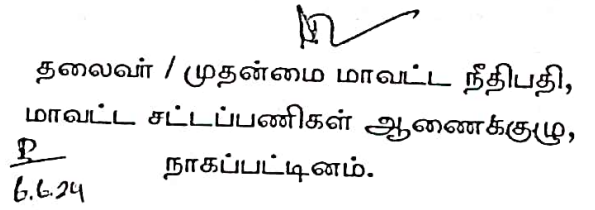 தலைவர் / முதன்மை மாவட்ட நீதிபதி,
மாவட்ட சட்டப்பணிகள் ஆணைக்குழு,
நாகப்பட்டினம்.
6.6.24